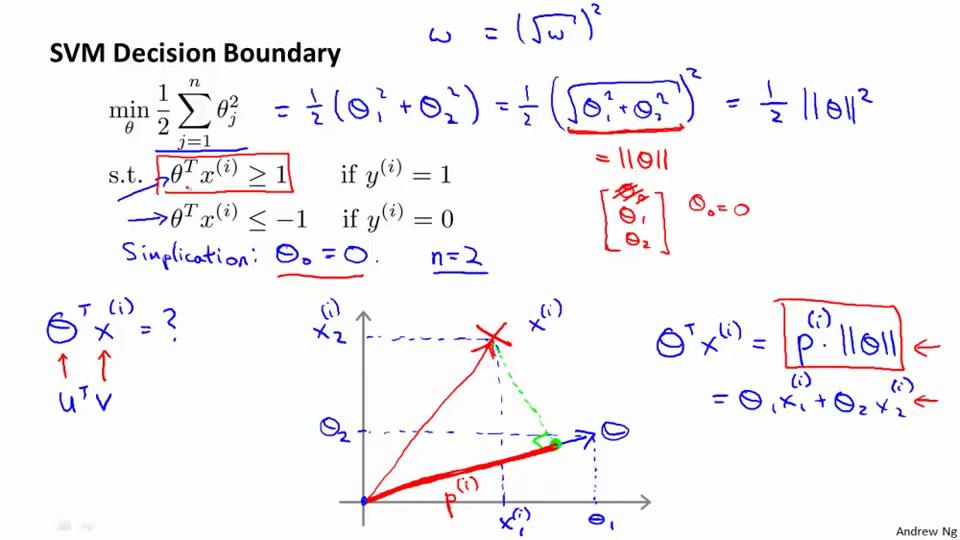 ω = (√ω)²
SVM Decision Boundary
min_θ 1/2 Σ_{j=1}^{n} θ_j² = 1/2 (θ₁² + θ₂²) = 1/2 (√θ₁² + θ₂²)² = 1/2 ||θ||²
= ||θ||
s.t. θᵀx⁽ⁱ⁾ ≥ 1 if y⁽ⁱ⁾ = 1
θᵀx⁽ⁱ⁾ ≤ −1 if y⁽ⁱ⁾ = 0
[θ₀ θ₁ θ₂] θ₀ = 0
Simplication: θ₀ = 0. n=2
θᵀx⁽ⁱ⁾ = ?
uᵀv
x₂⁽ⁱ⁾
x⁽ⁱ⁾
θ₂
θ
p⁽ⁱ⁾
x₁⁽ⁱ⁾
θ₁
θᵀx⁽ⁱ⁾ = p⁽ⁱ⁾·||θ|| ←
= θ₁x₁⁽ⁱ⁾ + θ₂x₂⁽ⁱ⁾ ←
Andrew Ng